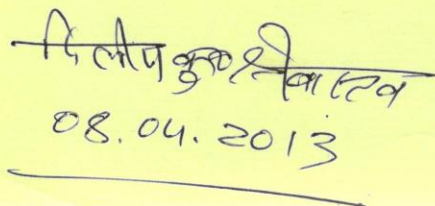 दिलीप कुमार श्रीवास्तव
08.04.2013